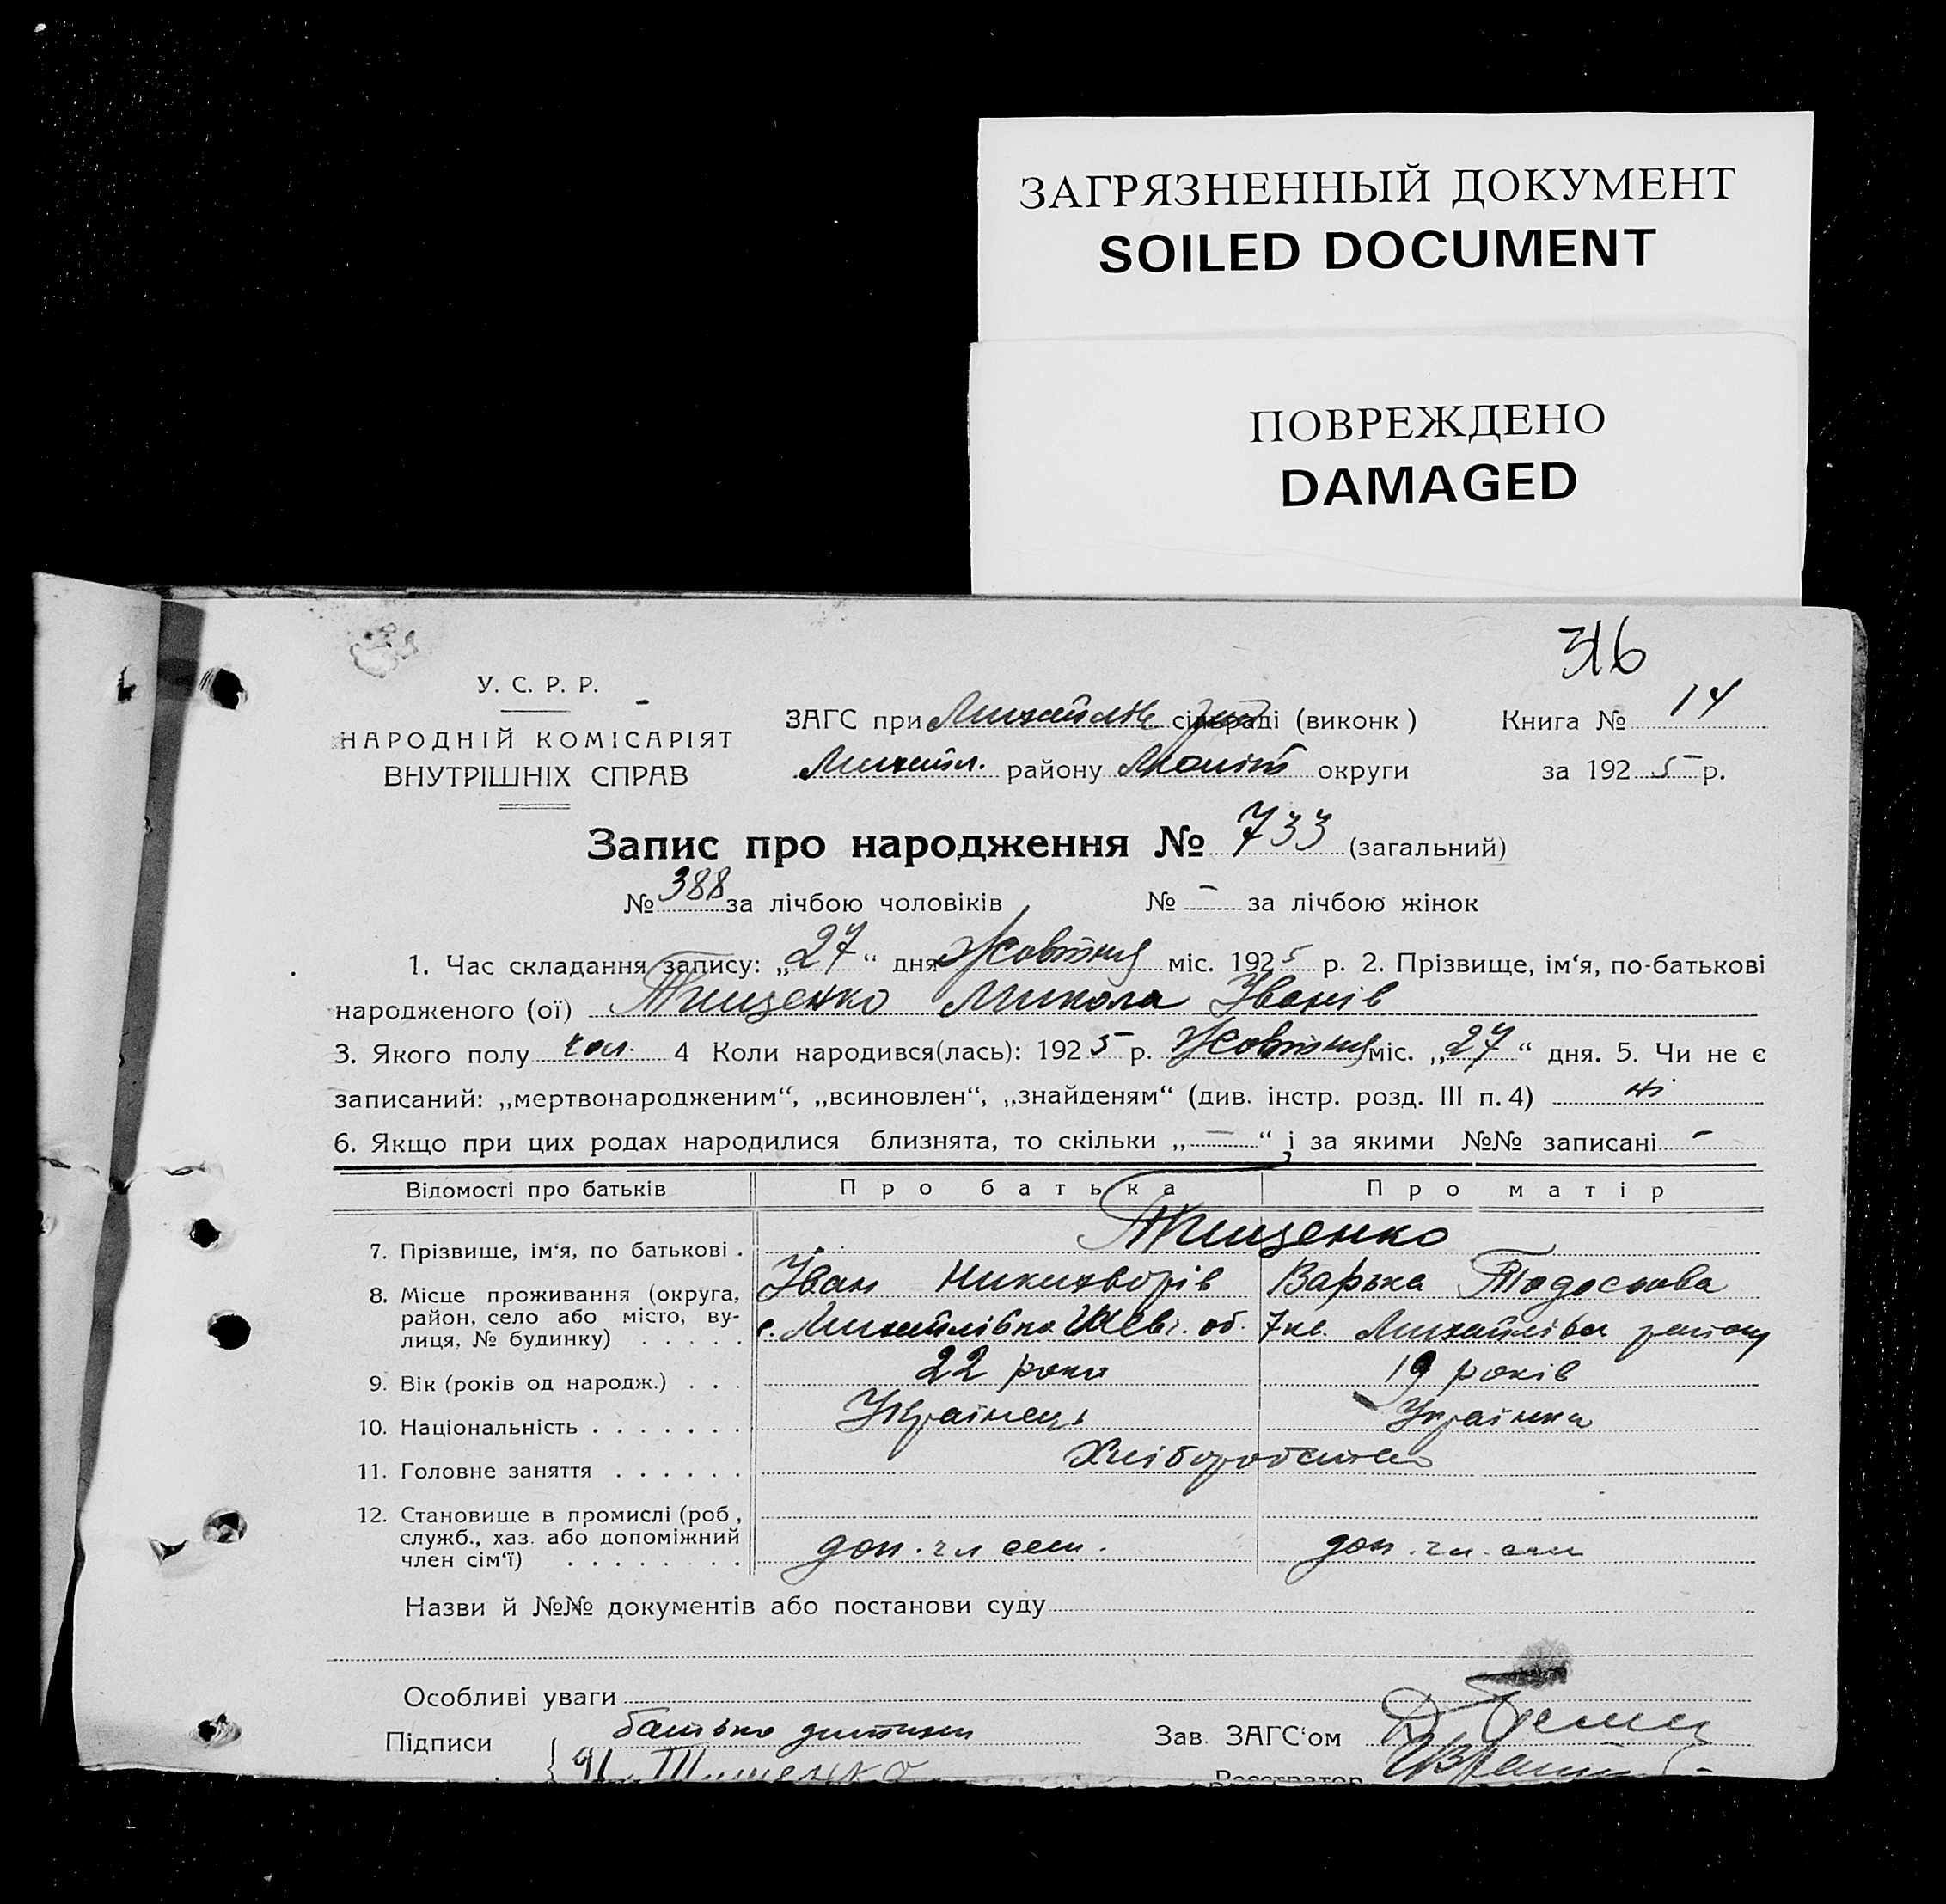 ЗАГРЯЗНЕННЫЙ ДОКУМЕНТ
SOILED DOCUMENT
ПОВРЕЖДЕНО
DAMAGED
316
У. С. Р. Р.
НАРОДНІЙ КОМІСАРІЯТ
ВНУТРІШНІХ СПРАВ
ЗАГС при сільраді (виконк) Книга № 14
Михайл. району округи за 1925 р.
Запис про народження № 733 (загальний)
№ 388 за лічбою чоловіків № - за лічбою жінок
1. Час складання запису: „27“ дня Жовтня міс. 1925 р. 2. Прізвище, ім‘я, по-батькові
народженого (ої) Тищенко Микола Іванів
3. Якого полу чол. 4 Коли народився(лась): 1925 р. Жовтня міс. „27“ дня. 5. Чи не є
записаний: „мертвонародженим“, „всиновлен“, „знайденям“ (див. інстр. розд. III п. 4) ні
6. Якщо при цих родах народилися близнята, то скільки „-“ і за якими №№ записані -
Відомості про батьків Про батька Про матір
Тищенко
7. Прізвище, ім‘я, по батькові .
Іван Никихворів Варька Тодосова
8. Місце проживання (округа,
район, село або місто, ву-
лиця, № будинку) . . . . .
с. Михайлівка об. 7 кв. Михайлівськ району
9. Вік (років од народж.) . . . 22 роки 19 років
10. Національність . . . . . . . Українець Українка
11. Головне заняття . . . . . . Хлiборобство
12. Становище в промислі (роб,
служб., хаз. або допоміжний
член сім‘ї) . . . . . . . . доп. чл сем. доп. чл. сем
Назви й №№ документів або постанови суду
Особливі уваги
Підписи батько дитини Зав. ЗАГС‘ом
И. Тищенко Реєстратор